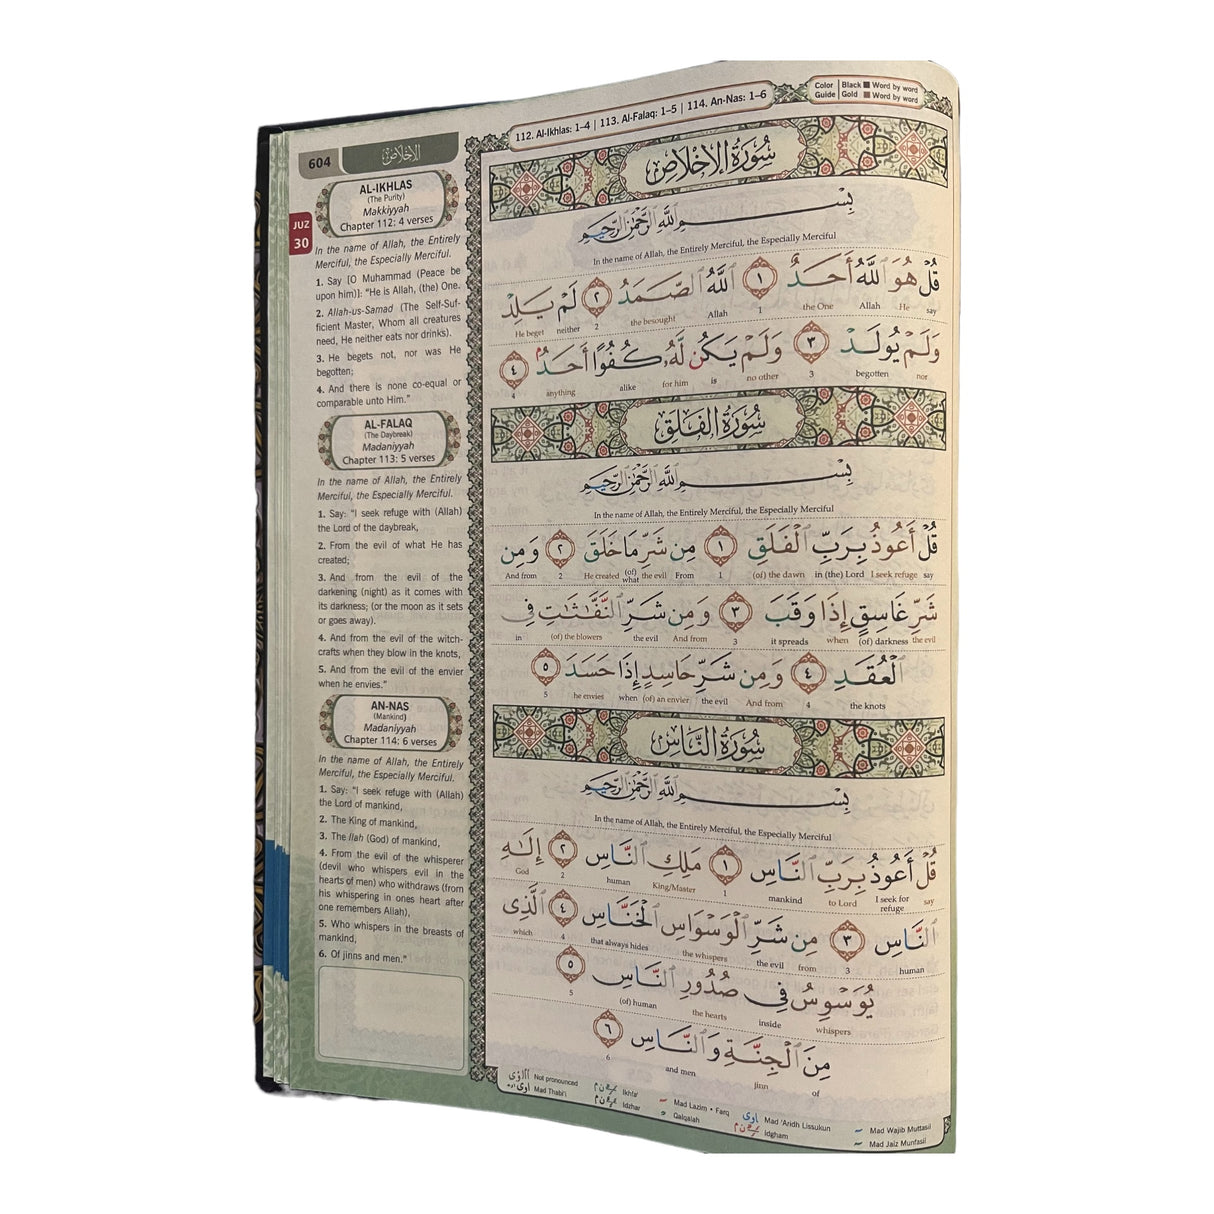 112. Al-Ikhlas: 1–4 | 113. Al-Falaq: 1–5 | 114. An-Nas: 1–6
Color Guide | Black ■ Word by word
Gold ■ Word by word
604
الإخلاص
JUZ
30
AL-IKHLAS
(The Purity)
Makkiyyah
Chapter 112: 4 verses
In the name of Allah, the Entirely
Merciful, the Especially Merciful.
1. Say [O Muhammad (Peace be
upon him)]: "He is Allah, (the) One.
2. Allah-us-Samad (The Self-Suf-
ficient Master, Whom all creatures
need, He neither eats nor drinks).
3. He begets not, nor was He
begotten;
4. And there is none co-equal or
comparable unto Him."
AL-FALAQ
(The Daybreak)
Madaniyyah
Chapter 113: 5 verses
In the name of Allah, the Entirely
Merciful, the Especially Merciful.
1. Say: "I seek refuge with (Allah)
the Lord of the daybreak,
2. From the evil of what He has
created;
3. And from the evil of the
darkening (night) as it comes with
its darkness; (or the moon as it sets
or goes away).
4. And from the evil of the witch-
crafts when they blow in the knots,
5. And from the evil of the envier
when he envies."
AN-NAS
(Mankind)
Madaniyyah
Chapter 114: 6 verses
In the name of Allah, the Entirely
Merciful, the Especially Merciful.
1. Say: "I seek refuge with (Allah)
the Lord of mankind,
2. The King of mankind,
3. The Ilah (God) of mankind,
4. From the evil of the whisperer
(devil who whispers evil in the
hearts of men) who withdraws (from
his whispering in ones heart after
one remembers Allah),
5. Who whispers in the breasts of
mankind,
6. Of jinns and men."
سُورَةُ الإِخْلَاصِ
بِسْمِ ٱللَّهِ ٱلرَّحْمَٰنِ ٱلرَّحِيمِ
In the name of Allah, the Entirely Merciful, the Especially Merciful
قُلْ هُوَ ٱللَّهُ أَحَدٌ ١ ٱللَّهُ ٱلصَّمَدُ ٢ لَمْ يَلِدْ
say He Allah the One 1 Allah the besought 2 neither He beget
وَلَمْ يُولَدْ ٣ وَلَمْ يَكُن لَّهُۥ كُفُوًا أَحَدٌۢ ٤
nor begotten 3 no other is for him alike anything 4
سُورَةُ الفَلَقِ
بِسْمِ ٱللَّهِ ٱلرَّحْمَٰنِ ٱلرَّحِيمِ
In the name of Allah, the Entirely Merciful, the Especially Merciful
قُلْ أَعُوذُ بِرَبِّ ٱلْفَلَقِ ١ مِن شَرِّ مَا خَلَقَ ٢ وَمِن
say I seek refuge in (the) Lord (of) the dawn 1 From the evil (of) what He created 2 And from
شَرِّ غَاسِقٍ إِذَا وَقَبَ ٣ وَمِن شَرِّ ٱلنَّفَّٰثَٰتِ فِى
the evil (of) darkness when it spreads 3 And from the evil (of) the blowers in
ٱلْعُقَدِ ٤ وَمِن شَرِّ حَاسِدٍ إِذَا حَسَدَ ٥
the knots 4 And from the evil (of) an envier when he envies 5
سُورَةُ النَّاسِ
بِسْمِ ٱللَّهِ ٱلرَّحْمَٰنِ ٱلرَّحِيمِ
In the name of Allah, the Entirely Merciful, the Especially Merciful
قُلْ أَعُوذُ بِرَبِّ ٱلنَّاسِ ١ مَلِكِ ٱلنَّاسِ ٢ إِلَٰهِ
say I seek for refuge to Lord mankind 1 King/Master human 2 God
ٱلنَّاسِ ٣ مِن شَرِّ ٱلْوَسْوَاسِ ٱلْخَنَّاسِ ٤ ٱلَّذِى
human 3 from the evil the whispers that always hides 4 which
يُوَسْوِسُ فِى صُدُورِ ٱلنَّاسِ ٥
whispers inside the hearts (of) human 5
مِنَ ٱلْجِنَّةِ وَٱلنَّاسِ ٦
of jinn and men 6
Not pronounced
Mad Thabi'i
Ikhfa'
Idzhar
Mad Lazim • Farq
Qalqalah
Mad 'Aridh Lissukun
Idgham
Mad Wajib Muttasil
Mad Jaiz Munfasil